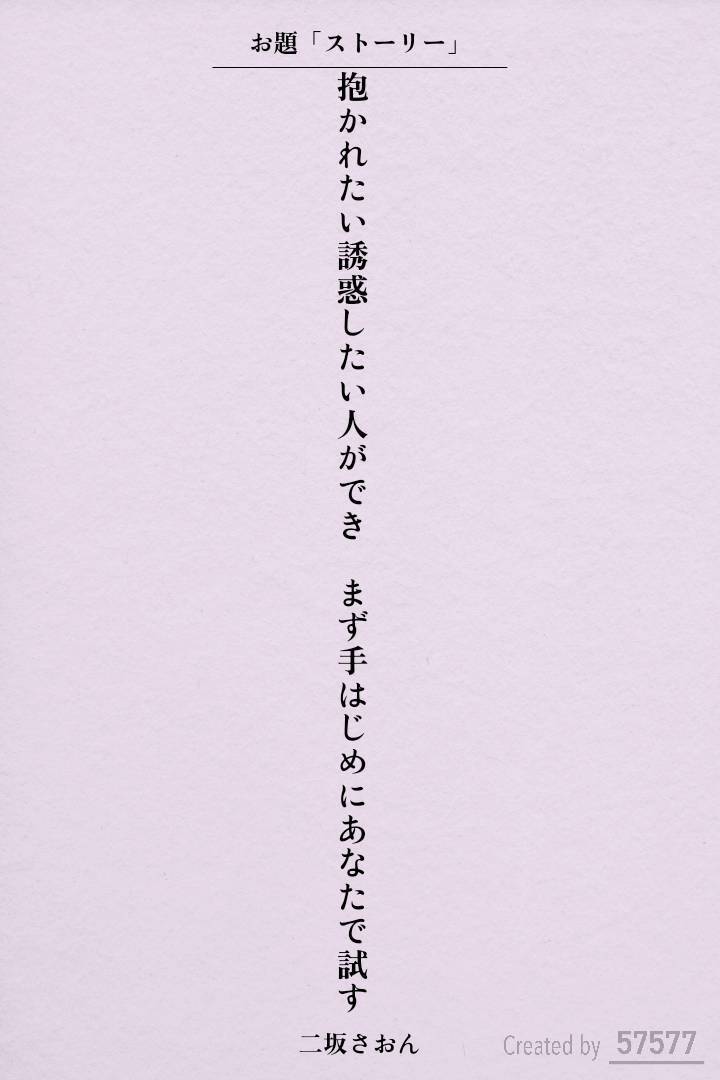 お題「ストーリー」
抱かれたい誘惑したい人ができ　まず手はじめにあなたで試す
二坂さおん
Created by 57577